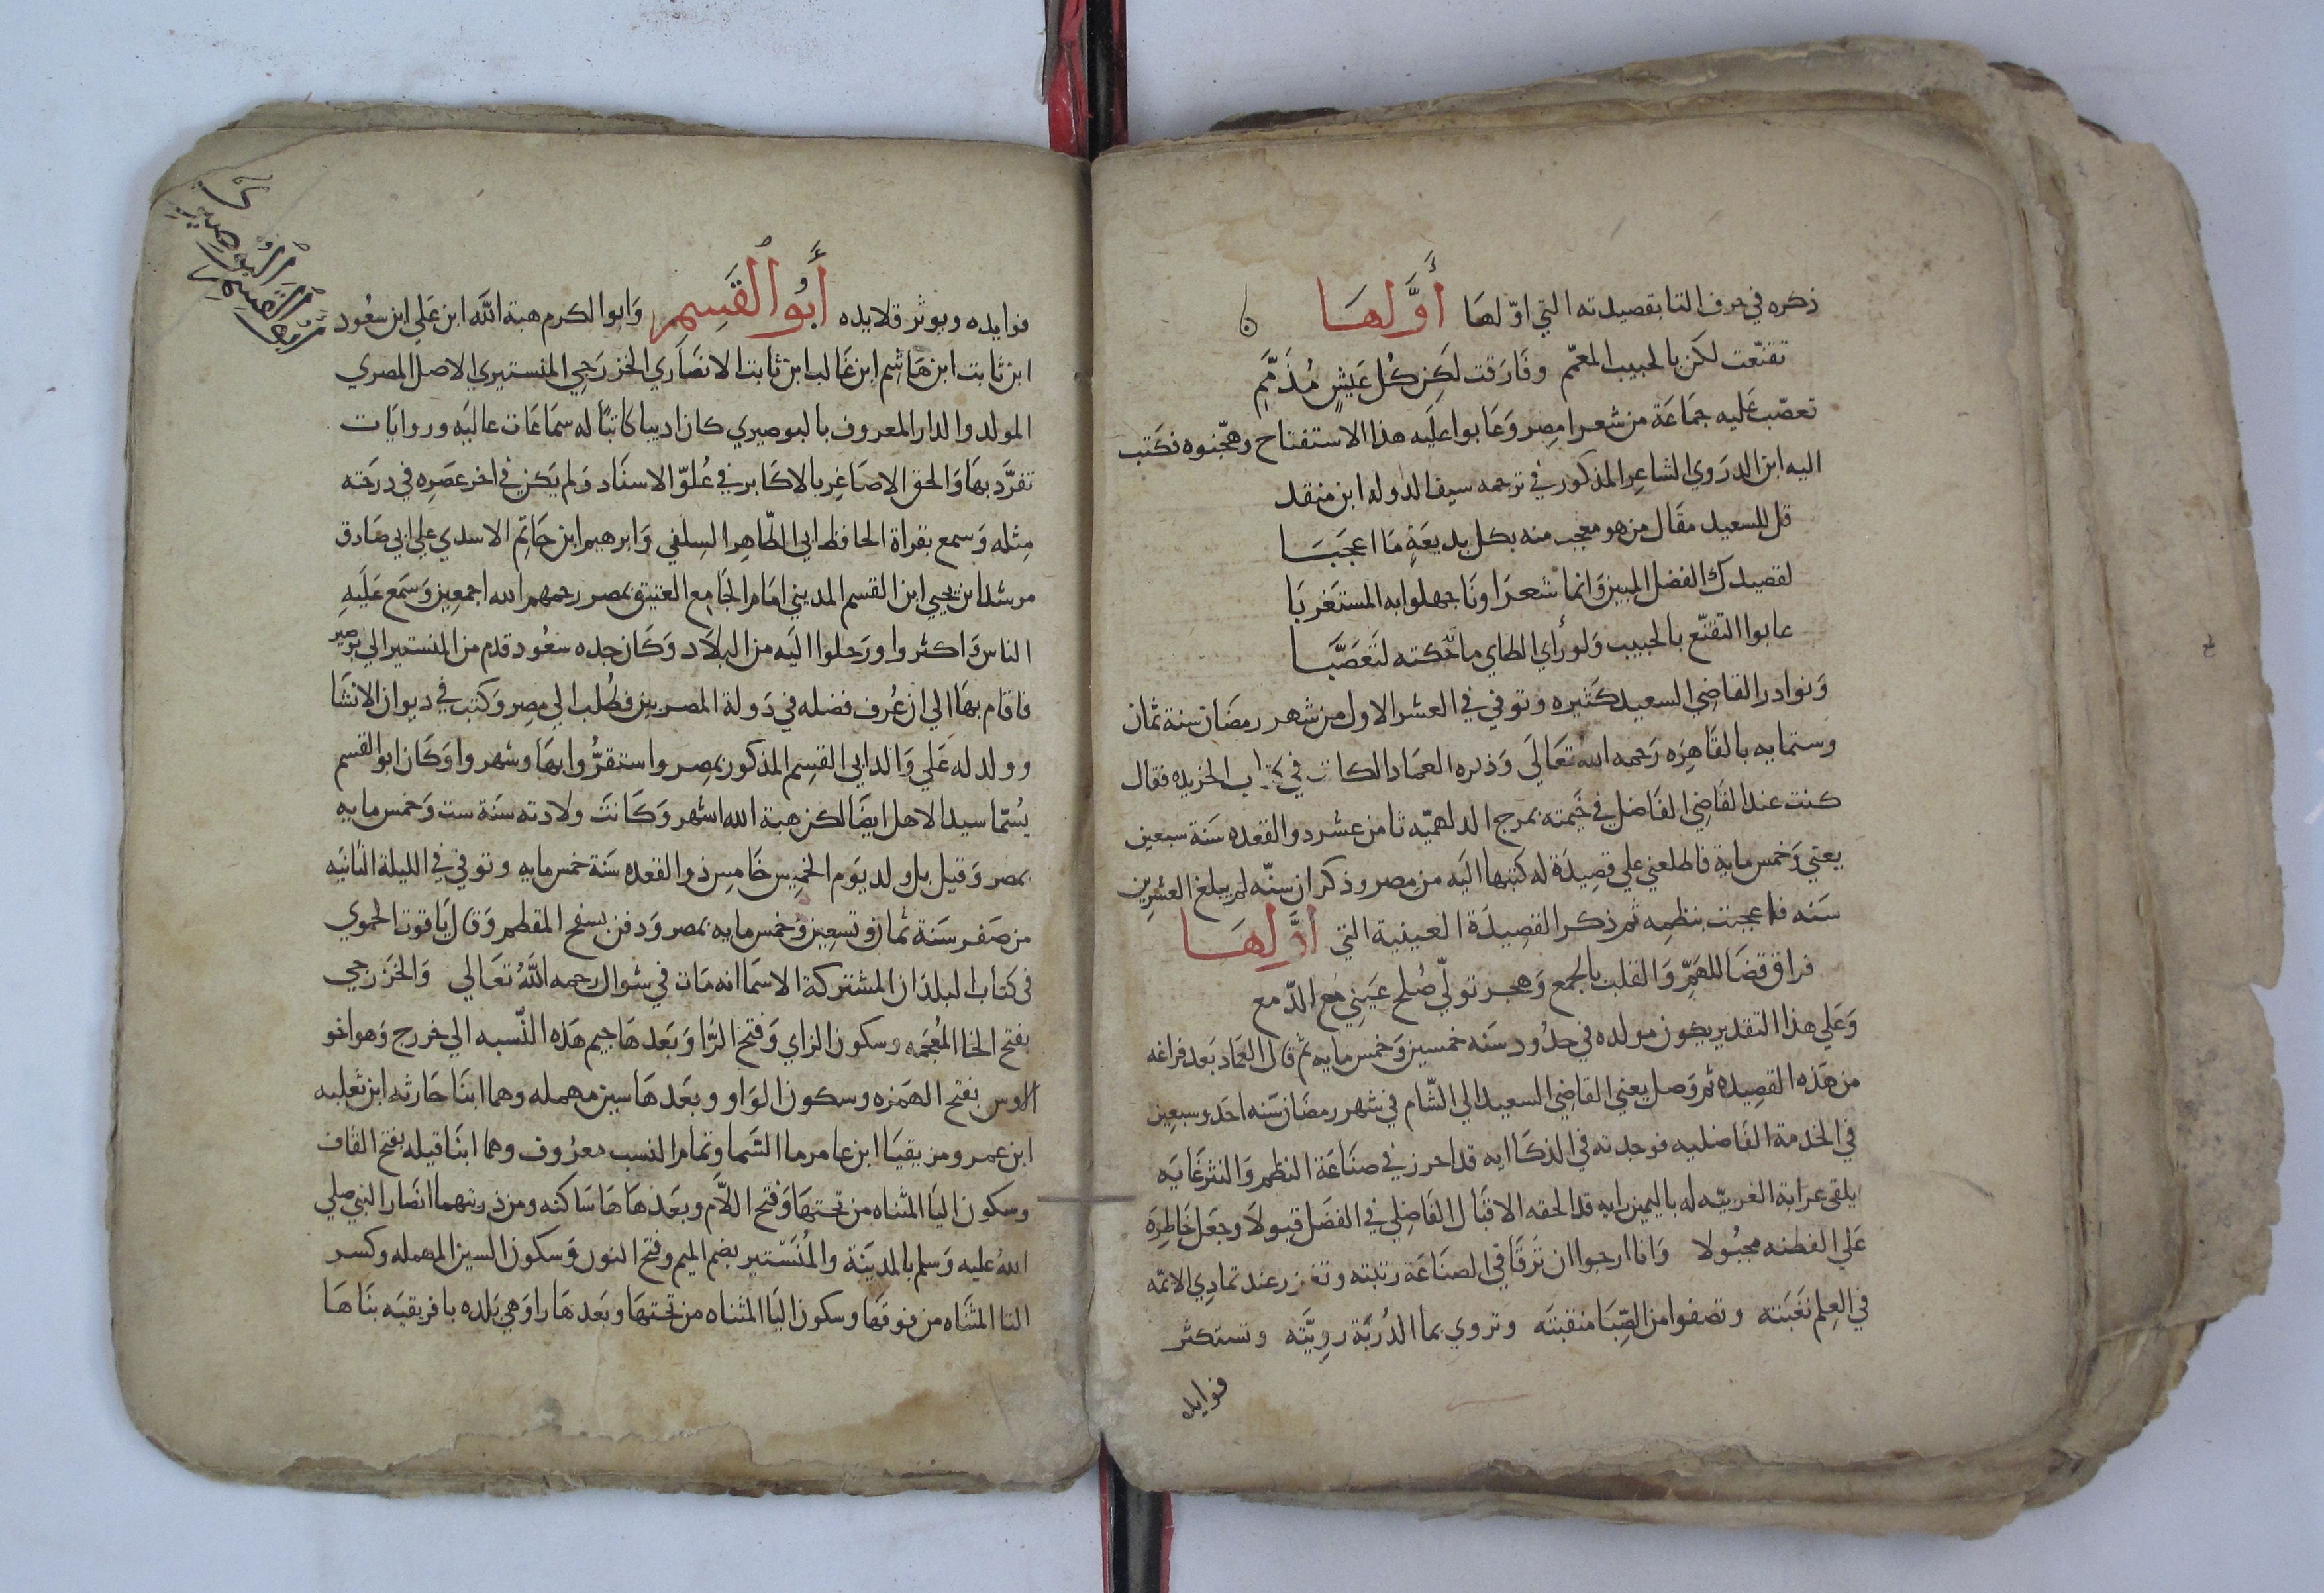 ذكره في حرف التا بقصيدته التي اوّلها أَوَّلهَا
تقنّعت لكن بالحبيب المعمّم وفَارَقت لَكِن كُل عَيشٍ مُذَمَّمِ
تعصّب عَليه جمَاعَة من شعرا مِصر وَعَابوا عليَه هذا الاستفتاح وهجّنوه فكَتب
اليه ابن الدرَوي الشاعِر المذكور في ترجمه سيف الدوله ابن منقد
قل للسعيد مقَال من هو معجب منه بكل بديعَةٍ مَا اعجبَـا
لقصيدك الفضل المبين وَانما شعرَاونَا جهلوا به المستَغربَا
عابوا التقنّع بالحبيب وَلو رأي الطاي ما حَكته لتَعَصَّبـا
وَنوادر القاضي السعيد كَثيره وتوفي في العشر الاول من شهر رمضَان سنة ثمان
وستمايه بالقَاهِرَه رَحمه الله تعَالَي وَذكره العمَاد الكاتب في كتاب الخريده فقال
كنت عند القَاضِي الفَاضل في خَيمته بمرج الدلهميّه ثامن عشر ذو القعده سَنة سبعين
يعني وَخمس ماية فاطلعني علي قصِيدَة له كَتبها اليَه من مِصر وذكر ان سنّه لم يبلغ العشرِين
سَنه فاعجبت بنظمِه ثم ذكر القصِيدَة العينية التي اوَّلهَـا
فراق قضَا للهَمِّ وَالقلب بالجمع وَهجر تولّي صُلح عَينِي مَع الدّمع
وَعَلي هذا التقدير يكون مولده في حدُود سَنه خمسين وَخمس مايه ثم قال العمَاد بَعد فراغه
من هَذه القصِيده ثم وَصل يعني القاضِي السعيد الي الشّام في شهر رمضَان سَنه احَد وسبعِين
في الخدمة الفَاضليه فوجدته في الذكَا ايه قد احرز في صنَاعَة النظم وَالنثر غَايَه
يلقي عرابة العَربيّه له باليمين رايه قد الحقه الاقبَال الفَاضِلي في الفضَل قبولا وجعَل خَاطِره
عَلي الفطنه مجبُولا وَانا ارجوا ان تَرقَا في الصنَاعَة رتبته وتغزر عند تمادِي الامّه
في العِلم نَغبَته وتصفوا من الصِّبَا منقبتَه وتروي بما الدُربَة رويَّته وتستكثر
فوايده
فوايده ويوثر قلايده أَبُو القَسِم وَابوا لكرم هبة الله ابن عَلي ابن سعُود
ابن ثابت ابن هَاشِم ابن غَالب ابن ثابت الانصَاري الخزرَجي المنستيري الاصل المصري
المولد والدار المعروف بالبوصيري كان اديبا كَاتبًا له سمَاعَات عاليَه وروايَات
تفرَّد بهَا وَالحق الاصَاغِر بالاكَابر في عُلوّ الاسنَاد وَلم يَكن في اخر عَصِرِه في درَجَته
مِثله وَسمع بقراة الحافظ ابي الطّاهِر السِلَفي وَابرهيم ابن حَاتِم الاسدي علي ابي صَادق
مرشد ابن يحيي ابن القسم المديني امَام الجَامِع العتيق بمصر رحمهم الله اجمعِين وَسَمع عَلَيهِ
الناس وَاكثروا ورَحلوا اليَه من البلاَد وَكَان جده سعُود قدم من المنستير الي بوصير
فاقام بهَا الي ان عُرف فضله في دَولة المصريين فطُلب الي مِصر وَكَتب في ديوان الانشَا
وولد له عَلي وَالد ابي القسِم المذكور بمِصر واستقرُّوا بهَا وشهروا وَكَان ابو القسم
يُسَمّا سيد الاهل ايضَا لكن هبة الله اشهر وَكَانَت ولادته سَنة ست وَخمس مايه
بمصر وَقيل بل ولد يَوم الخمِيس خَامِس ذو القعده سَنة خمس مايه وتوفي في الليلة الثانيَه
من صَفر سَنة ثمان وتسعِين وَخمس مايه بمصر وَدفن بسفح المقطم وَقال يَاقوت الحموي
في كتاب البلدَان المشتركة الاسمَا انه مَات في شوال رحمه الله تعَالي وَالخَزرجي
بفتح الخا المُعجَمه وسكون الزاي وَفتح الرّا وَبَعدهَا جيم هَذه النّسبه الي خزرج وَهو اخو
الاوس بفتح الهَمزه وسكون الوَاو وبعَدهَا سين مهمله وهما ابنَا حَارثه ابن ثعلبه
ابن عمرو مزيقيَا ابن عامر ما السَّما وتمَام النسب معرُوف وهما ابنَا قيله بفتح القاف
وسكون اليَا المثناه من تحتهَا وَفتح اللاَّم وبعَدهَا هَا سَاكنه ومن ذريتهما انصَار النبي صلي
الله عليه وَسلم بالمدينَة والمُنَسْتير بضم الميم وفتح النون وَسكون السين المهمله وكسر
التا المثنَاه من فوقهَا وسكون اليَا المثناه من تحتهَا وبَعدهَا را وَهي بَلده بافريقيَه بنَاهَا